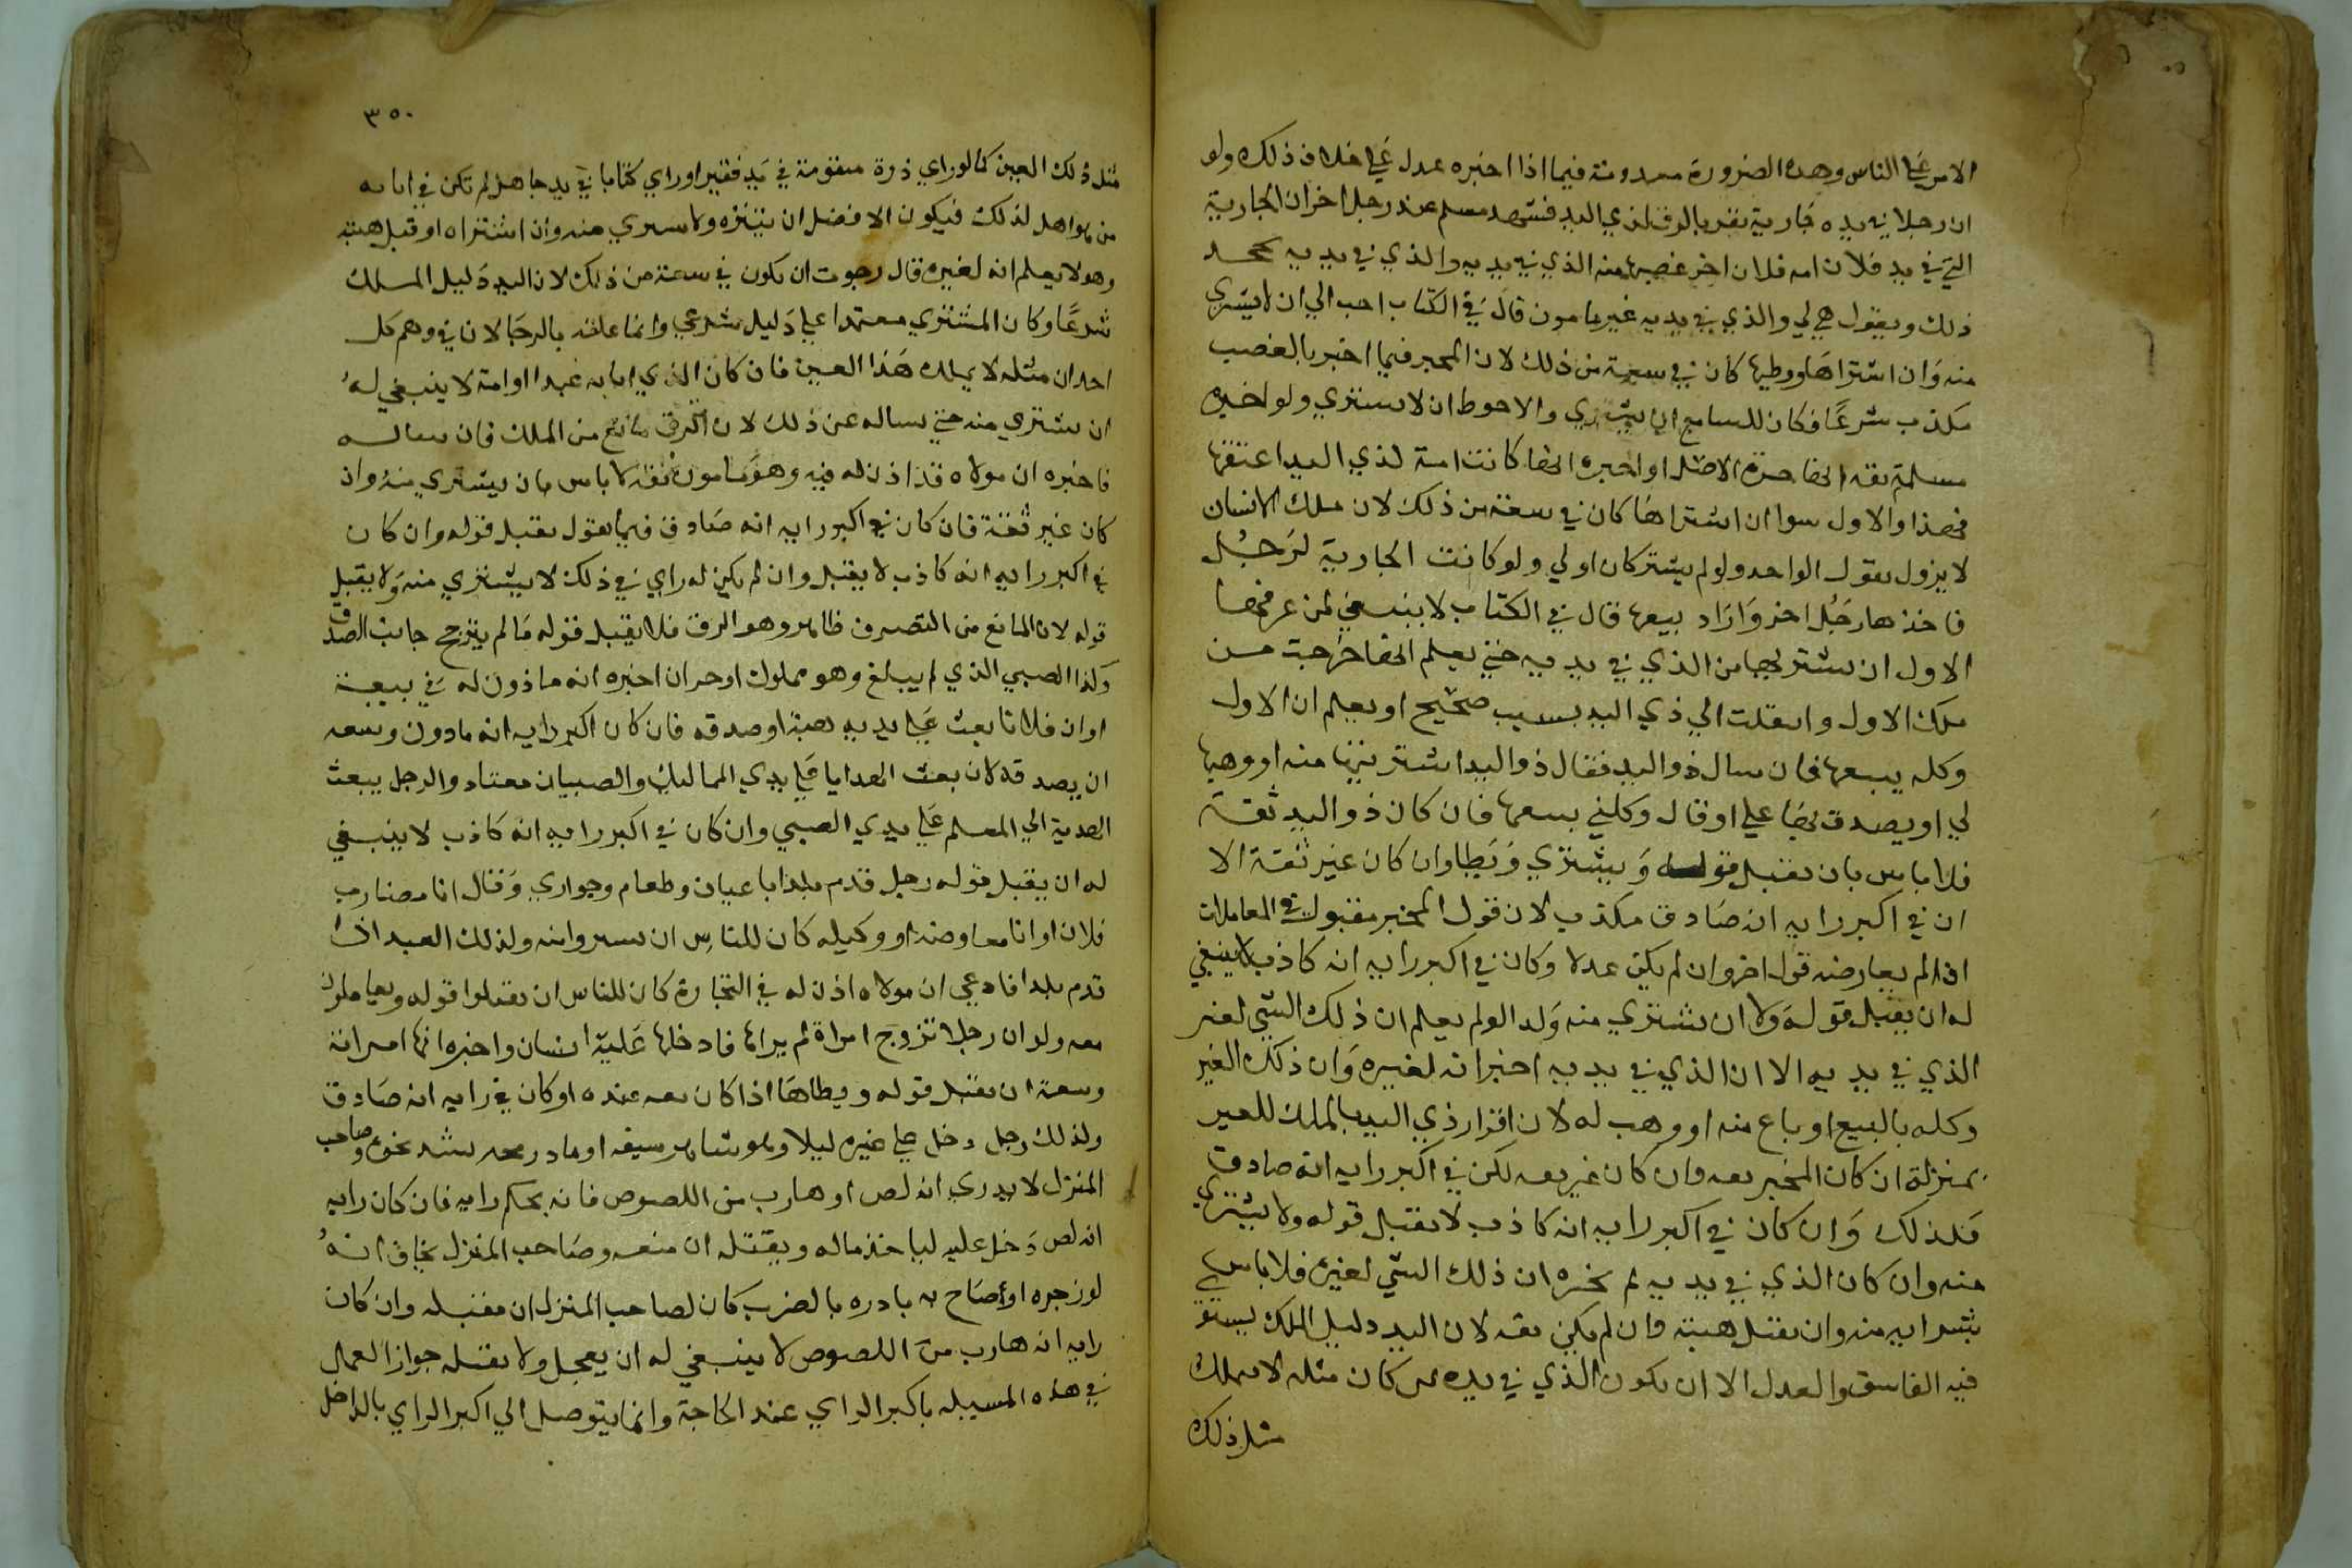 الامر علي الناس وهذه الضرورة معدومة فيما اذا اخبره عدل علي خلاف ذلك ولو
ان رجلا في يده جارية تقر بالرق لذي اليد فشهد مسلم عند رجل اخر ان الجارية
التي في يد فلان امه فلان اخر غصبها منه الذي في يديه والذي في يديه يجحد
ذلك ويقول هي لي والذي في يديه غير مامون قال في الكتاب احب الي ان لا يشتري
منه وان اشتراها ووطيها كان في سعة من ذلك لان المخبر فيما اخبر بالغصب
مكذب شرعا فكان للسامع ان يشتري والاحوط ان لا يشتري ولو اخبره
مسلم ثقه انها حرة الاصل او اخبره انها كانت امة لذي اليد اعتقها
فهذا والاول سوا ان اشتراها كان في سعة من ذلك لان ملك الانسان
لا يزول بقول الواحد ولو لم يشتر كان اولي ولو كانت الجارية لرجل
فاخذها رجل اخر واراد بيعها قال في الكتاب لا ينبغي لمن عرفها
الاول ان يشتريها من الذي في يديه حتي يعلم انها خرجت من
ملك الاول وانتقلت الي ذي اليد بسبب صحيح او يعلم ان الاول
وكله ببيعها فان سال ذو اليد فقال ذو اليد اشتريتها منه او وهبها
لي او يصدق بها علي او قال وكلني ببيعها فان كان ذو اليد ثقة
فلا باس بان يقبل قوله ويشتري ويطا وان كان غير ثقة الا
ان في اكبر رايه انه صادق مكذب لان قول المخبر مقبول في المعاملات
اذا لم يعارضه قول اخر وان لم يكن عدلا وكان في اكبر رايه انه كاذب لا ينبغي
له ان يقبل قوله ولا ان يشتري منه ولد الو لم يعلم ان ذلك الشي لغير
الذي في يديه الا ان الذي في يديه اخبر انه لغيره وان ذلك الغير
وكله بالبيع او باع منه او وهب له لان اقرار ذي اليد بالملك للغير
بمنزلة ان كان المخبر ثقه وان كان غير ثقه لكن في اكبر رايه انه صادق
فلذلك وان كان في اكبر رايه انه كاذب لا يقبل قوله ولا يشتري
منه وان كان الذي في يديه لم يخبره ان ذلك الشي لغيره فلا باس
بشرايه منه وان يقبل هبته وان لم يكن ثقه لان اليد دليل الملك يستو
فيه الفاسق والعدل الا ان يكون الذي في يده كان مثله لا يملك
مثل ذلك
٣٥٠
مثل ذلك العين كما لو راي ذرة متقومة في يد فقير او راي كتابا في يد جاهل لم تكن في ابايه
من هو اهل لذلك فيكون الافضل ان يتنزه ولا يشتري منه وان اشتراه او قبل هبته
وهو لا يعلم انه لغيره قال رجوت ان يكون في سعة من ذلك لان اليد دليل الملك
شرعا وكان المشتري معتمدا علي دليل شرعي وانما علقه بالرجا لان في وهم كل
احد ان مثله لا يملك هذا العين فان كان الذي اتا به عبدا او امة لا ينبغي له
ان يشتري منه حتي يساله عن ذلك لان الرق مانع من الملك فان ساله
فاخبره ان مولاه قد اذن له فيه وهو مامون ثقه لا باس بان يشتري منه وان
كان غير ثقة فان كان في اكبر رايه انه صادق فيما يقول يقبل قوله وان كان
في اكبر رايه انه كاذب لا يقبل وان لم يكن له راي في ذلك لا يشتري منه ولا يقبل
قوله لان المانع من التصرف ظاهر وهو الرق فلا يقبل قوله ما لم يترجح جانب الصدق
وكذا الصبي الذي لم يبلغ وهو مملوك او حر ان اخبره انه ماذون له في بيعة
او ان فلانا بعث علي يديه هبة او صدقه فان كان اكبر رايه انه ماذون وسعه
ان يصدقه لان بعث الهدايا علي يدي المماليك والصبيان معتاد والرجل يبعث
الهدية الي المعلم علي يدي الصبي وان كان في اكبر رايه انه كاذب لا ينبغي
له ان يقبل قوله رجل قدم بلدا باعيان وطعام وجواري وقال انا مضارب
فلان او انا مفاوضه او وكيله كان للناس ان يشتروا منه ولذلك العبد اذا
قدم بلدا فادعي ان مولاه اذن له في التجارة كان للناس ان يقبلوا قوله ويعاملون
معه ولو ان رجلا تزوج امراة لم يراها فادخلها عليه انسان واخبره انها امراته
وسعة ان يقبل قوله ويطاها اذا كان ثقه عنده او كان في رايه انه صادق
ولذلك رجل دخل علي غيره ليلا وهو شاهر سيفه او ماد رمحه يشد نحوه وصاحب
المنزل لا يدري انه لص او هارب من اللصوص فانه يحكم رايه فان كان رايه
انه لص دخل عليه لياخذ ماله ويقتله ان منعه وصاحب المنزل يخاف انه
لو زجره او صاح به بادره بالضرب كان لصاحب المنزل ان يقتله وان كان
رايه انه هارب من اللصوص لا ينبغي له ان يعجل ولا يقتله جواز العمل
في هذه المسيله باكبر الراي عند الحاجة وانما يتوصل الي اكبر الراي بالداخل